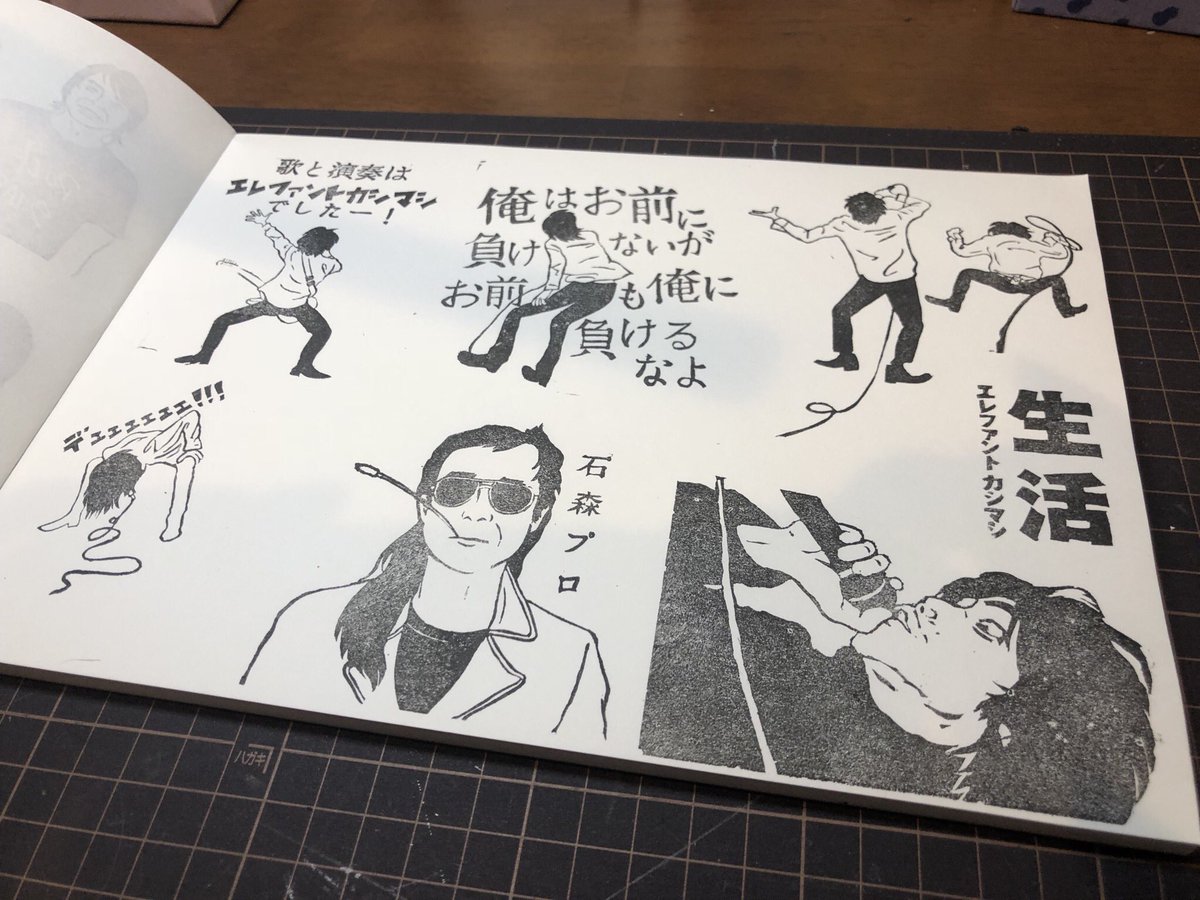 歌と演奏は
エレファントカシマシ
でしたー！
俺はお前に
負けないが
お前も俺に
負ける
なよ
デェェェェェェ!!!
石森プロ
生活
エレファントカシマシ
ハガキ